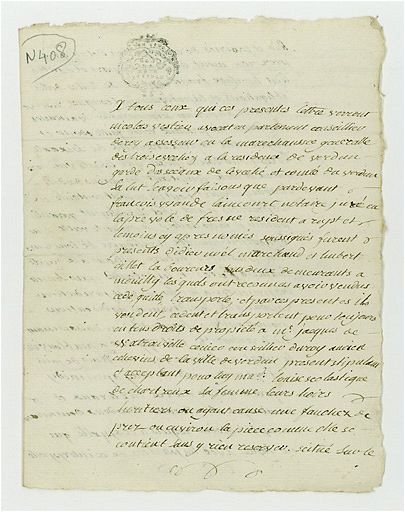 N 408
A tous ceux qui ces presentes lettre verront
nicolas vestier avocat en parlement conseillier
du roy assesseur en la marechaussée generalle
des trois evechez a la residence de verdun
garde des sceaux de l'eveché et comté de verdun
salut scavoir faisons que pardevant
francois viande laincourt notaire juré en
la prevosté de fresne resident a rupt et
temoins cy apres nommés soussignés furent
presents didier noël marchand et humbert
laboureurs tous deux demeurants a
mouilly les quels ont reconnus avoir vendus
cedé quitté transporté, et par ces presentes ils
vendent, cedent et transportent pour toujours
en tous droits de propriété a mr. jacques de
watronville conseillier du roy ancien
echevin de la ville de verdun present stipullant
et acceptant pour luy made. louise scolastique
de chartreux sa femme, leurs hoirs
heritiers ou ayant cause une fauchée de
prez ou environ la piece comme elle se
contient sans y rien reserver, scitué sur le